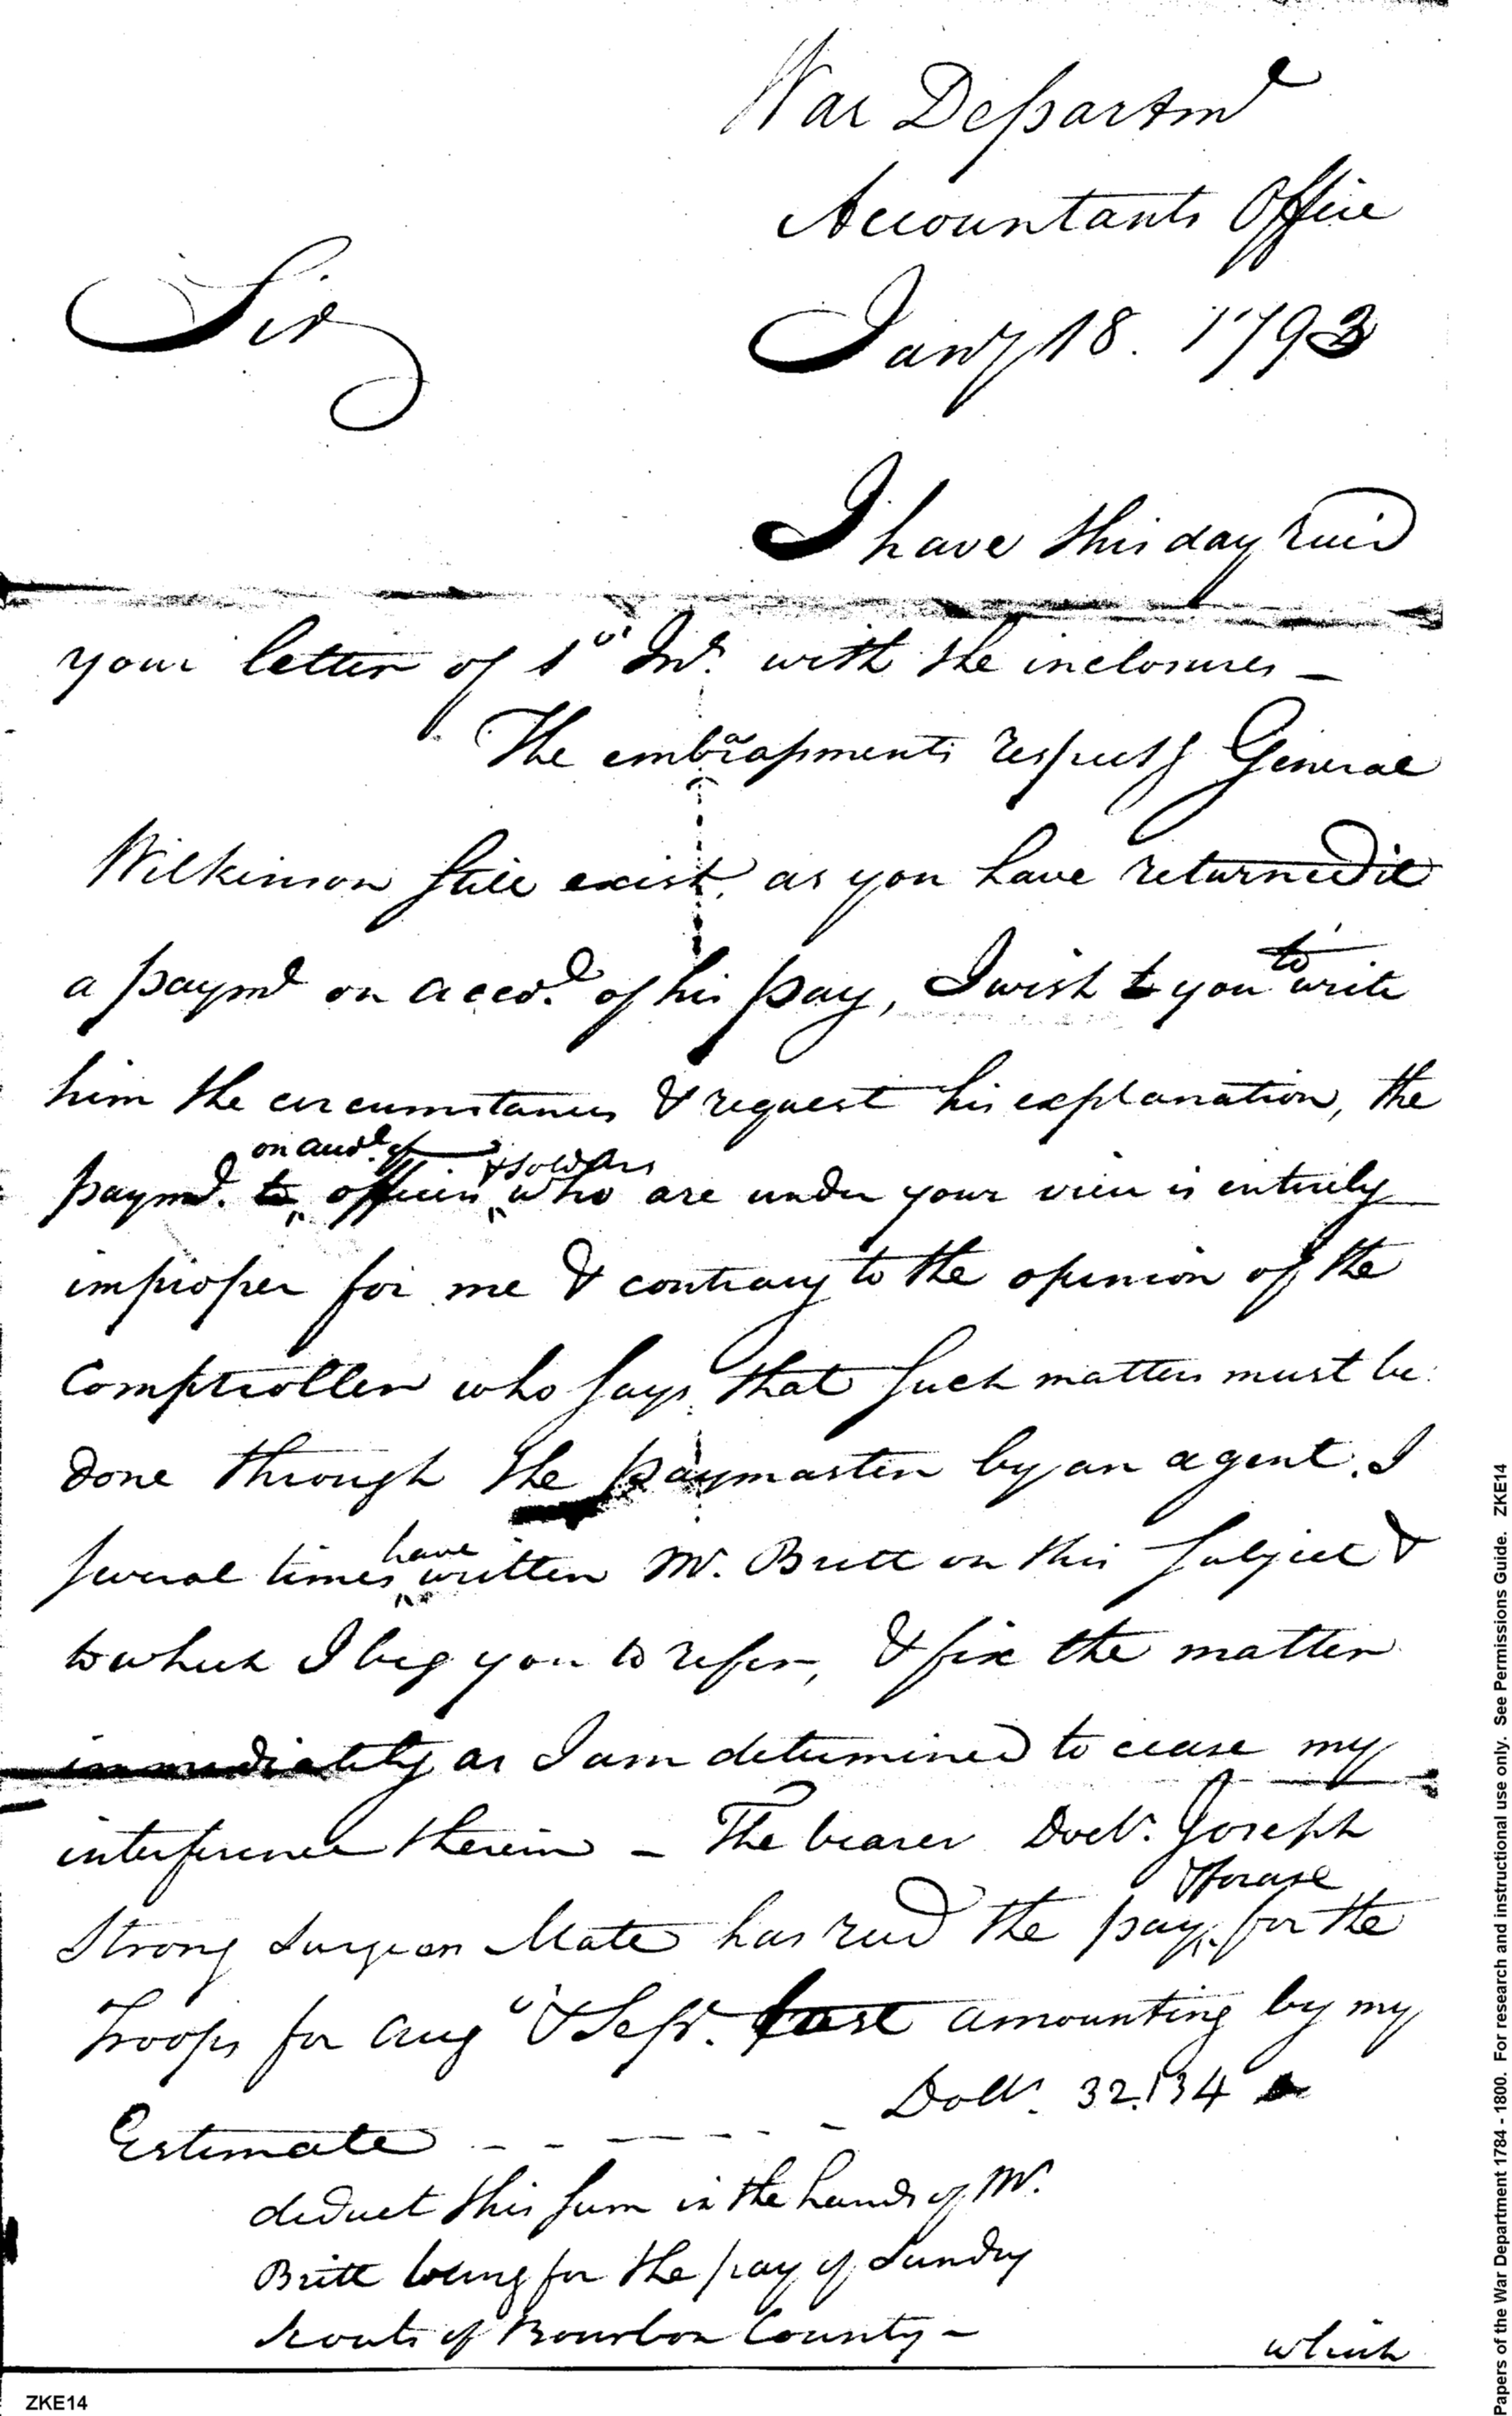 War Departmt
Accountants Office
Sir
Jany 18. 1793
I have this day recd
your letter of 1st Inst. with the inclosures —
The embarassments respectg General
Wilkinson still exist, as you have returned it
a paymt on accot. of his pay, I wish to you to write
him the circumstances & request his explanation, the
on accot. of & soldiers
paymt. to officers who are under your view is entirely
improper for me & contrary to the opinion of the
Comptroller who says that such matters must be
done through the paymaster by an agent. I
several times have written Mr. Britt on this subject &
to which I beg you to refer, & fix the matter
immediately as I am determined to cease my
interference therein — The bearer Doctr. Joseph
Strong Surgeon Mate has recd the pay & forage for the
Troops for Aug & Sepr. last amounting by my
Estimate - - - - - - Dolls. 32.134
deduct this sum in the hands of Mr.
Britt being for the pay of Sundry
Scouts of Bourbon County —
which
ZKE14
Papers of the War Department 1784 - 1800. For research and instructional use only. See Permissions Guide. ZKE14